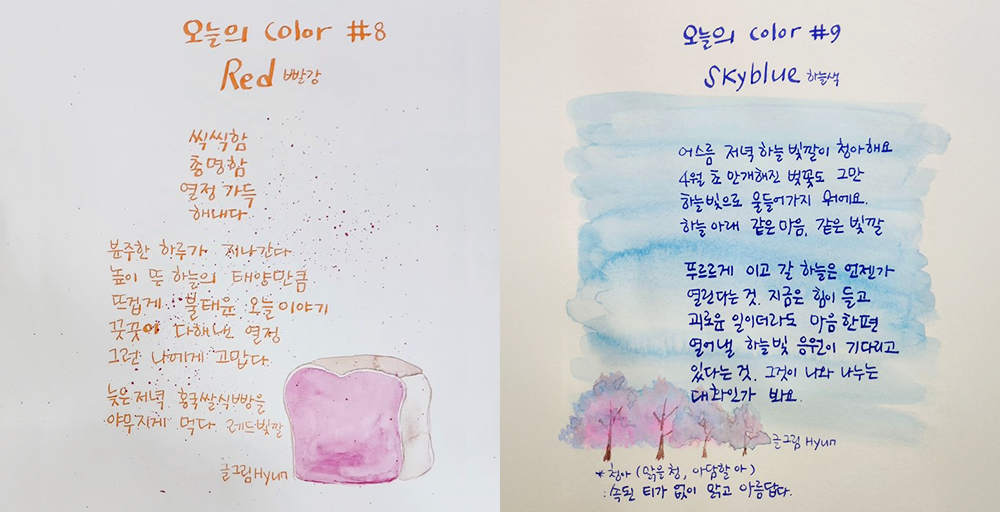 오늘의 Color #8
Red 빨강
씩씩함
총명함
열정 가득
해내다
분주한 하루가 지나간다
높이 뜬 하늘의 태양만큼
뜨겁게 불태운 오늘 이야기
꿋꿋이 다해낸 열정
그런 나에게 고맙다.
늦은 저녁 홍국쌀식빵을
야무지게 먹다. 레드빛깔
글그림 Hyun
오늘의 Color #9
Skyblue 하늘색
어스름 저녁 하늘 빛깔이 청아해요
4월 초 만개해진 벚꽃도 그만
하늘빛으로 물들어가지 뭐에요.
하늘 아래 같은 마음, 같은 빛깔
푸르르게 이고 갈 하늘은 언젠가
열린다는 것. 지금은 힘이 들고
괴로운 일이더라도 마음 한편
열어낼 하늘빛 응원이 기다리고
있다는 것. 그것이 나와 나누는
대화인가 봐요.
글그림 Hyun
* 청아 (맑을 청, 아담할 아)
: 속된 티가 없이 맑고 아름답다.